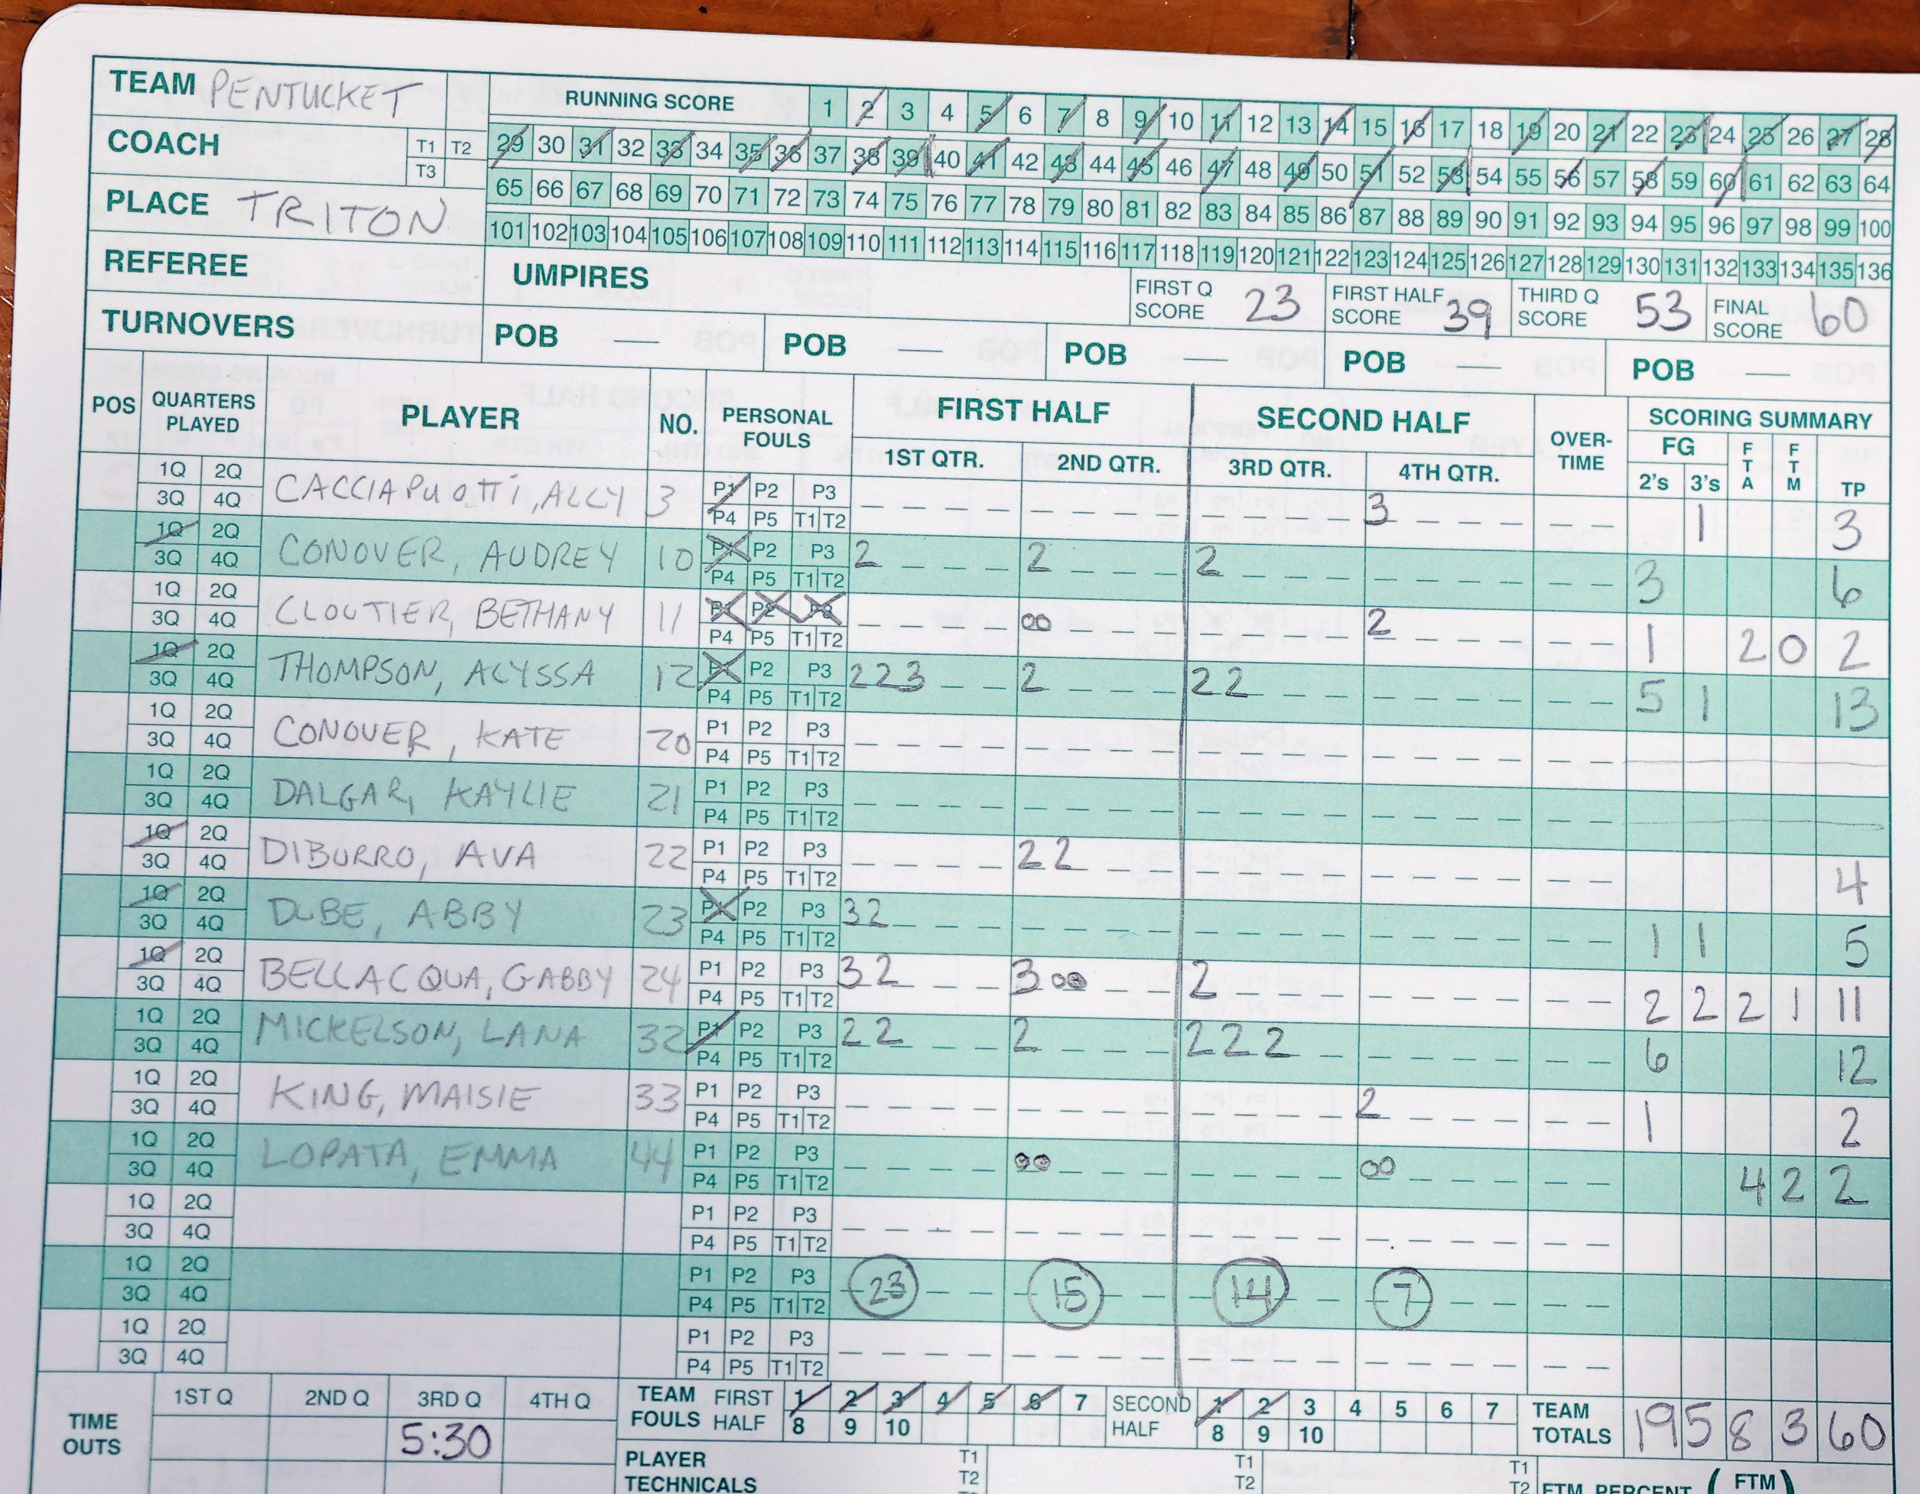 TEAM PENTUCKET
RUNNING SCORE 1 2 3 4 5 6 7 8 9 10 11 12 13 14 15 16 17 18 19 20 21 22 23 24 25 26 27 28
COACH T1 T2 T3
29 30 31 32 33 34 35 36 37 38 39 40 41 42 43 44 45 46 47 48 49 50 51 52 53 54 55 56 57 58 59 60 61 62 63 64
PLACE TRITON
65 66 67 68 69 70 71 72 73 74 75 76 77 78 79 80 81 82 83 84 85 86 87 88 89 90 91 92 93 94 95 96 97 98 99 100
101 102 103 104 105 106 107 108 109 110 111 112 113 114 115 116 117 118 119 120 121 122 123 124 125 126 127 128 129 130 131 132 133 134 135 136
REFEREE UMPIRES FIRST Q SCORE 23 FIRST HALF SCORE 39 THIRD Q SCORE 53 FINAL SCORE 60
TURNOVERS POB — POB — POB — POB — POB —
POS QUARTERS PLAYED PLAYER NO. PERSONAL FOULS FIRST HALF SECOND HALF OVER-TIME SCORING SUMMARY
1ST QTR. 2ND QTR. 3RD QTR. 4TH QTR. FG 2's 3's FTA FTM TP
1Q 2Q CACCIAPUOTTI, ALLY 3 P1 P2 P3 3 1 3
3Q 4Q P4 P5 T1 T2
1Q 2Q CONOVER, AUDREY 10 P1 P2 P3 2 2 2 3 6
3Q 4Q P4 P5 T1 T2
1Q 2Q CLOUTIER, BETHANY 11 P1 P2 P3 00 2 1 2 0 2
3Q 4Q P4 P5 T1 T2
1Q 2Q THOMPSON, ALYSSA 12 P1 P2 P3 2 2 3 2 2 2 5 1 13
3Q 4Q P4 P5 T1 T2
1Q 2Q CONOVER, KATE 20 P1 P2 P3
3Q 4Q P4 P5 T1 T2
1Q 2Q DALGAR, KAYLIE 21 P1 P2 P3
3Q 4Q P4 P5 T1 T2
1Q 2Q DIBURRO, AVA 22 P1 P2 P3 2 2 4
3Q 4Q P4 P5 T1 T2
1Q 2Q DUBE, ABBY 23 P1 P2 P3 3 2 1 1 5
3Q 4Q P4 P5 T1 T2
1Q 2Q BELLACQUA, GABBY 24 P1 P2 P3 3 2 3 00 2 2 2 2 1 11
3Q 4Q P4 P5 T1 T2
1Q 2Q MICKELSON, LANA 32 P1 P2 P3 2 2 2 2 2 2 6 12
3Q 4Q P4 P5 T1 T2
1Q 2Q KING, MAISIE 33 P1 P2 P3 2 1 2
3Q 4Q P4 P5 T1 T2
1Q 2Q LOPATA, EMMA 44 P1 P2 P3 00 00 4 2 2
3Q 4Q P4 P5 T1 T2
1Q 2Q P1 P2 P3
3Q 4Q P4 P5 T1 T2
1Q 2Q P1 P2 P3 23 15 14 7
3Q 4Q P4 P5 T1 T2
1Q 2Q P1 P2 P3
3Q 4Q P4 P5 T1 T2
TIME OUTS 1ST Q 2ND Q 3RD Q 4TH Q
5:30
TEAM FOULS FIRST HALF 1 2 3 4 5 6 7 8 9 10 SECOND HALF 1 2 3 4 5 6 7 8 9 10 TEAM TOTALS 19 5 8 3 60
PLAYER TECHNICALS T1 T2 T1 T2 T1 T2 FTM PERCENT (FTM)